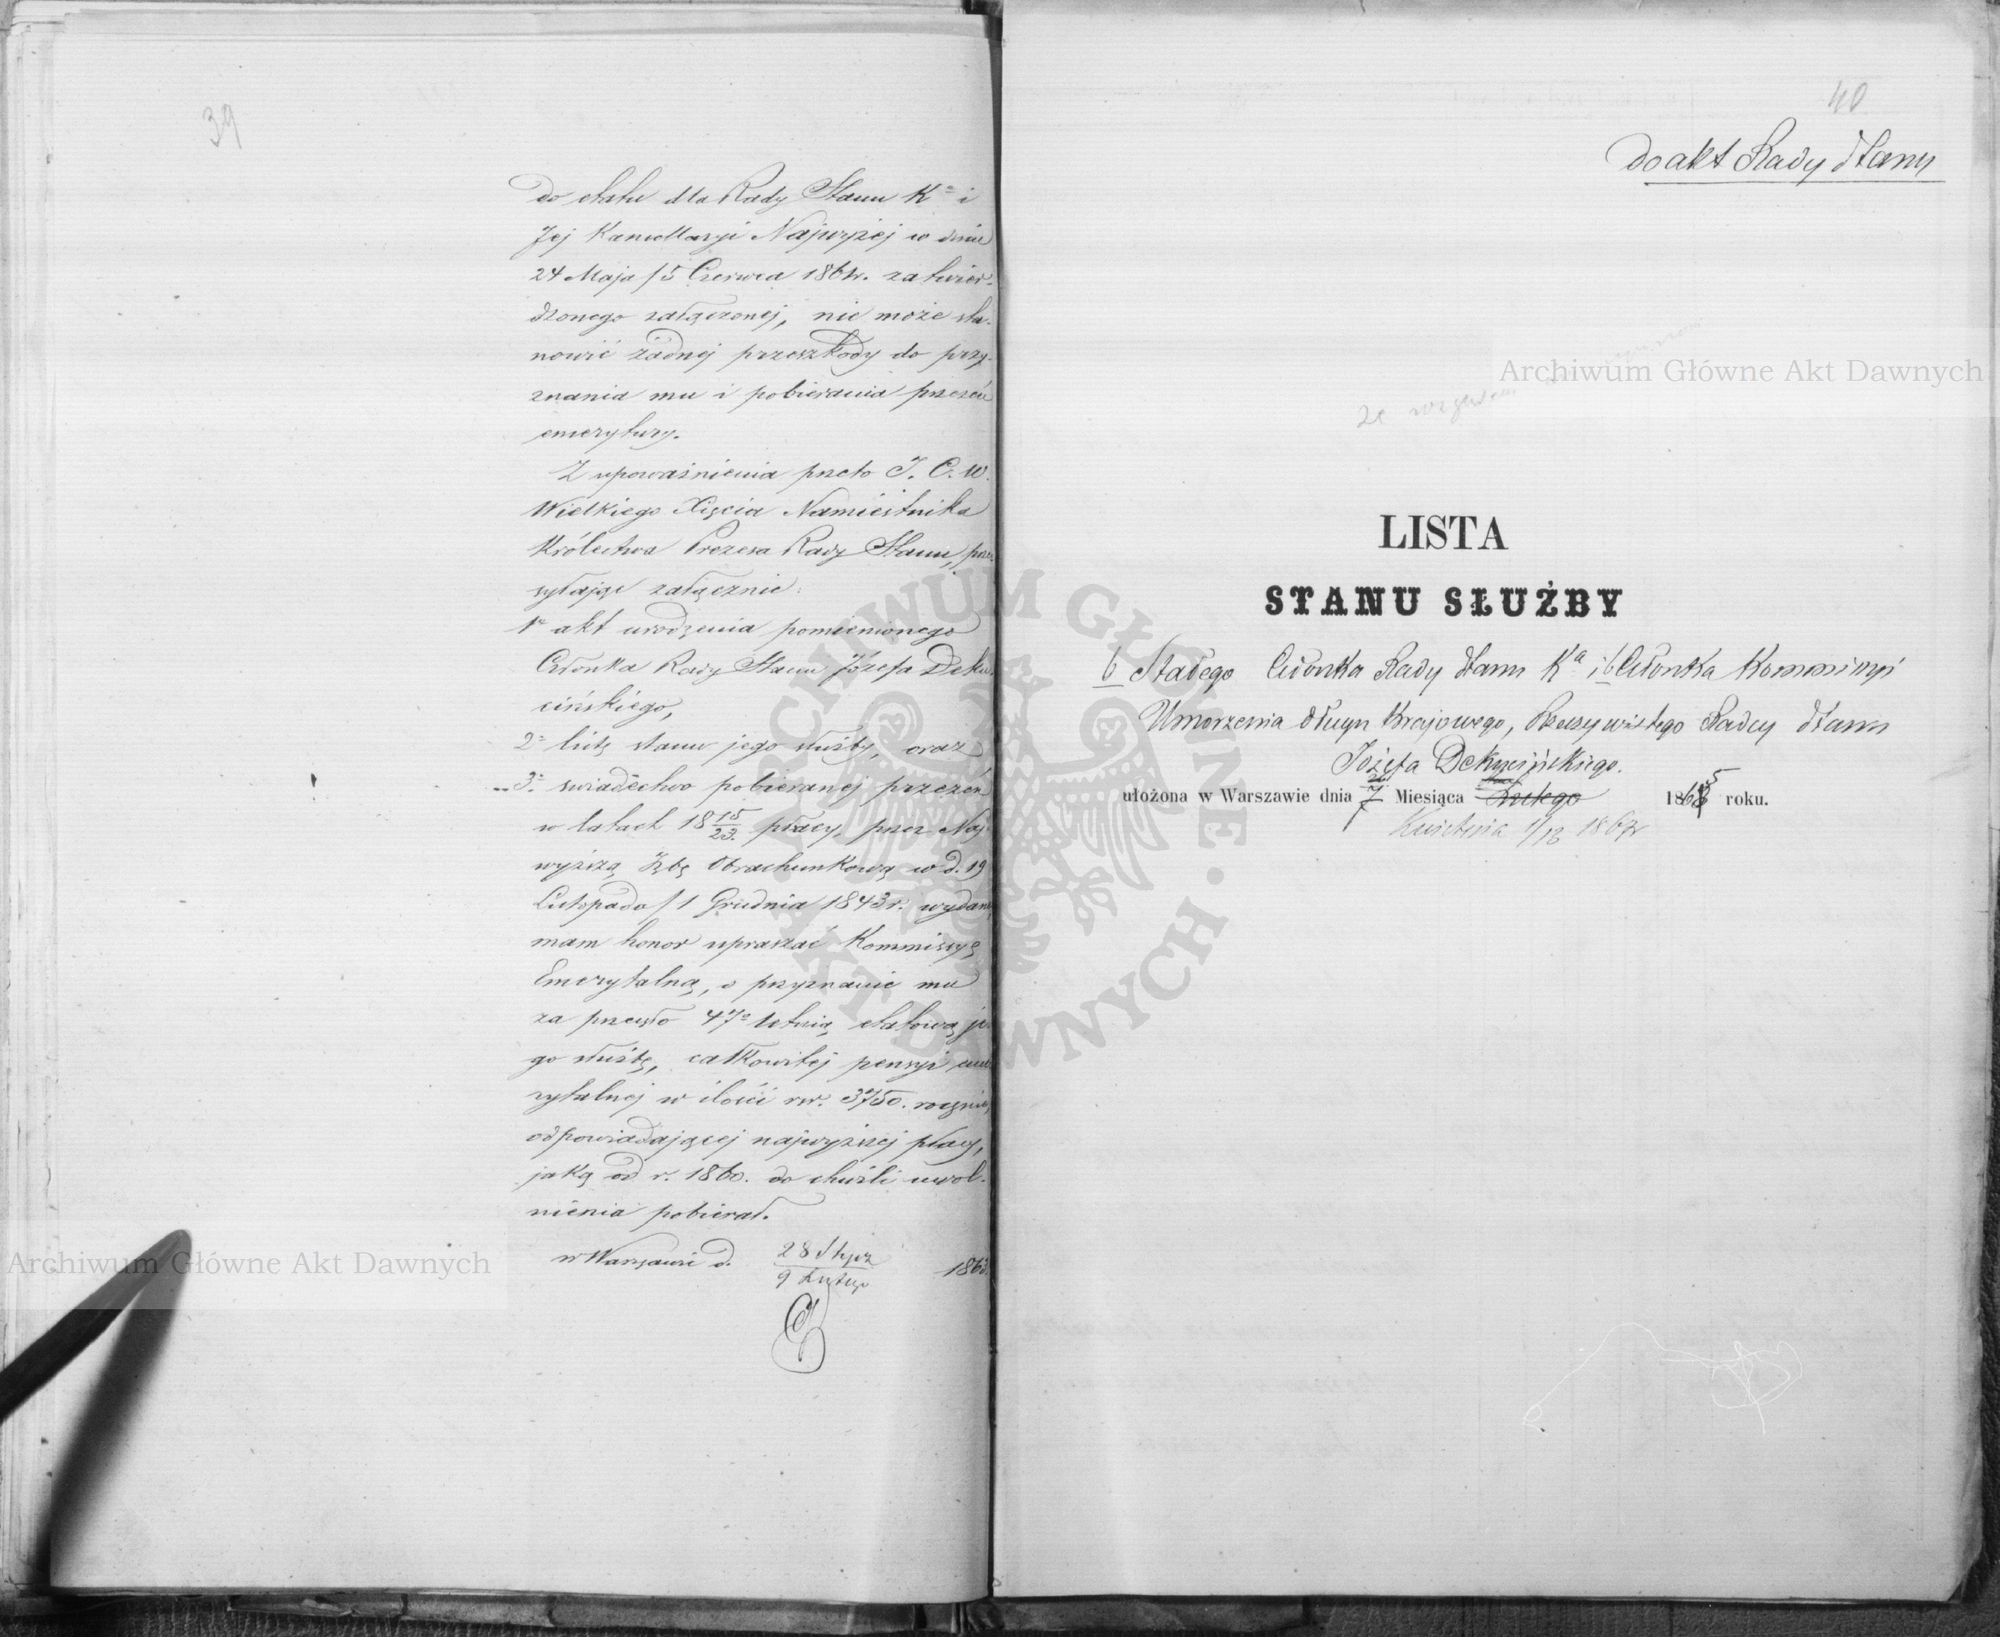 39
do etatu dla Rady Stanu Kª i
Jej Kancellaryi Najwyżej w dniu
24 Maja / 5 Czerwca 186 r. zatwier-
dzonego załączonej, nie może sta-
nowić żadnej przeszkody do przy-
znania mu i pobierania przezeń
emerytury.
Z upoważnienia przeto J. C. W.
Wielkiego Xięcia Namiestnika
Królestwa Prezesa Rady Stanu, prze-
syłając załącznie:
1º akt urodzenia pomienionego
Członka Rady Stanu Józefa Deku-
cińskiego,
2º listę stanu jego służby, oraz
3º świadectwo pobieranej przezeń
w latach 18 15/23. płacy, przez Naj-
wyższą Izbę Obrachunkową w d. 19
Listopada / 1 Grudnia 1843 r. wydane
mam honor upraszać Kommissyę
Emerytalną, o przyznanie mu
za przeszło 47º letnią etatową je-
go służbę, całkowitej pensyi eme-
rytalnej w ilości rsr. 3750. rocznie,
odpowiadającej najwyższej płacy,
jaką od r. 1860. do chwili uwol-
nienia pobierał.
w Warszawie d. 28 Stycz / 9 Lutego 186
40
do akt Rady Stanu
LISTA
STANU SŁUŻBY
b Stałego Członka Rady Stanu Kª i b Członka Kommissyi
Umorzenia długu Krajowego, Rzeczywistego Radcy Stanu
Józefa Dekucińskiego.
ułożona w Warszawie dnia 7 Miesiąca Lutego 1865 roku.
Kwietnia 1/13 1867r
Archiwum Główne Akt Dawnych
Archiwum Główne Akt Dawnych
ARCHIWUM GŁÓWNE · AKT DAWNYCH ·